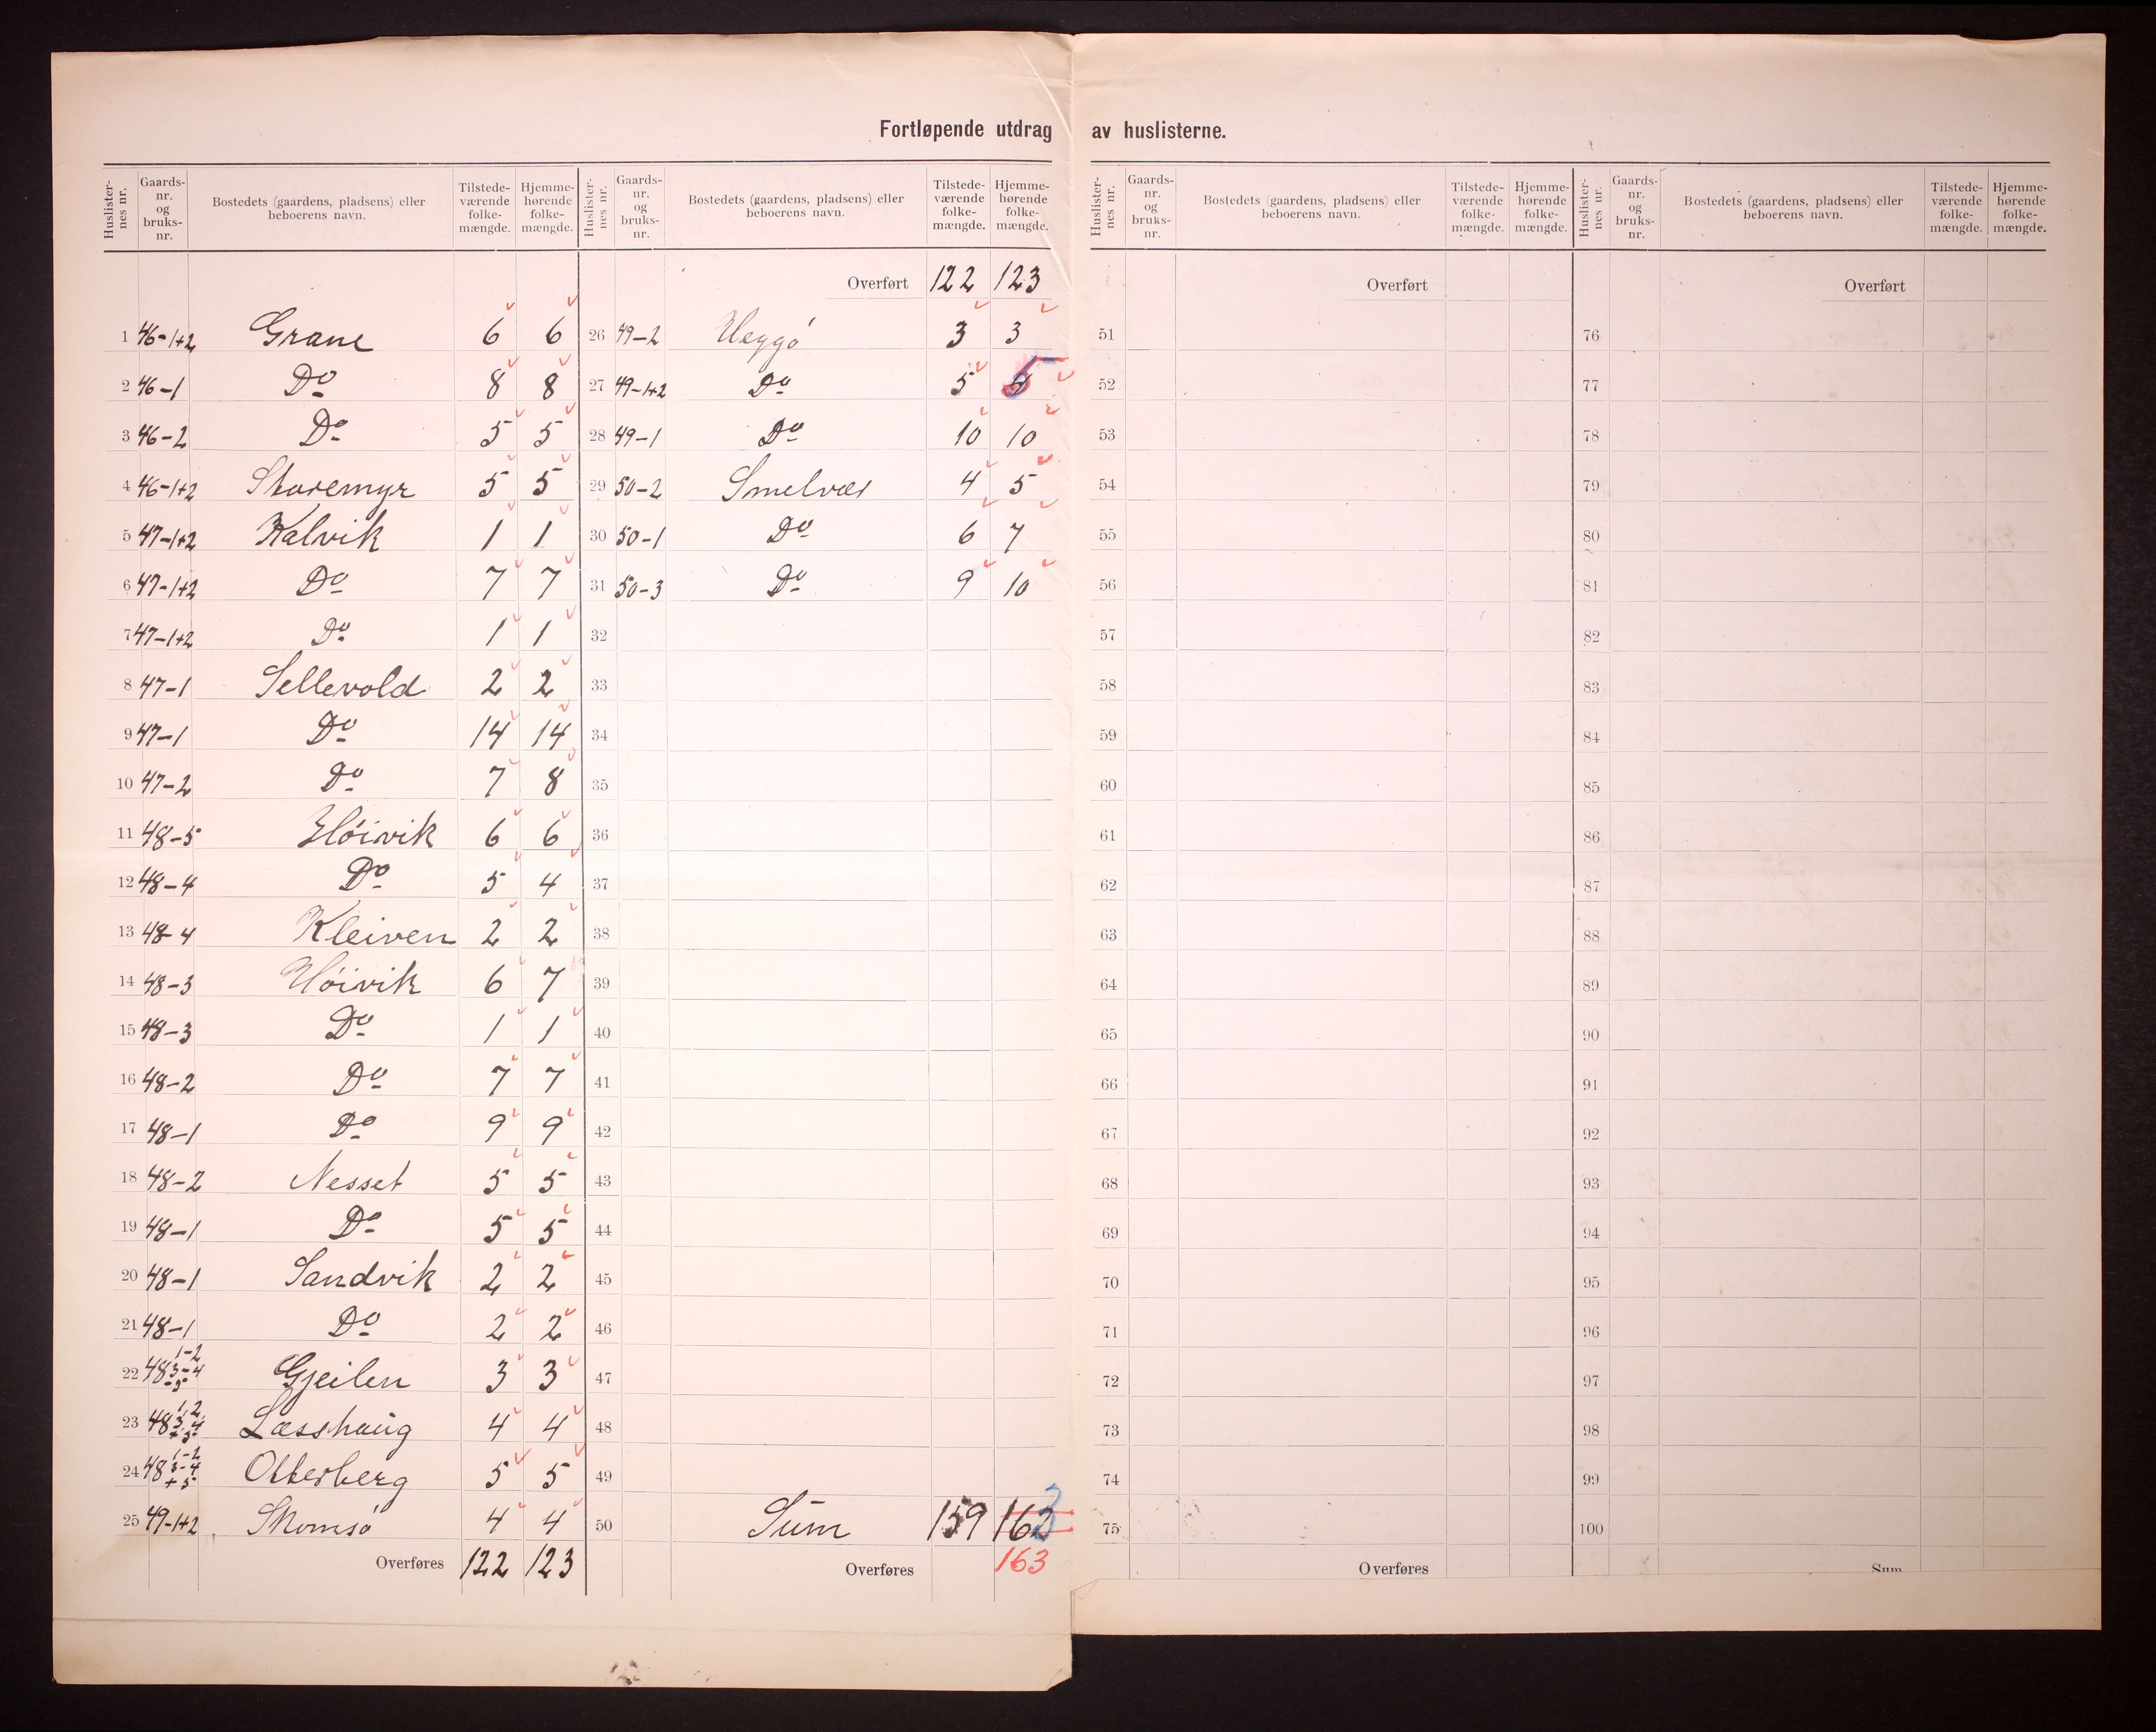 Fortløpende utdrag av huslisterne.
Huslister-nes nr. | Gaards-nr. og bruks-nr. | Bostedets (gaardens, pladsens) eller beboerens navn. | Tilstede-værende folke-mængde. | Hjemme-hørende folke-mængde.
1 46-1+2 Grane 6 6
2 46-1 Do 8 8
3 46-2 Do 5 5
4 46-1+2 Storemyr 5 5
5 47-1+2 Kalvik 1 1
6 47-1+2 Do 7 7
7 47-1+2 Do 1 1
8 47-1 Sellevold 2 2
9 47-1 Do 14 14
10 47-2 Do 7 8
11 48-5 Höivik 6 6
12 48-4 Do 5 4
13 48-4 Kleiven 2 2
14 48-3 Höivik 6 7
15 48-3 Do 1 1
16 48-2 Do 7 7
17 48-1 Do 9 9
18 48-2 Nesset 5 5
19 48-1 Do 5 5
20 48-1 Sandvik 2 2
21 48-1 Do 2 2
22 48 1-2 3-4 -5 Gjeilen 3 3
23 48 1,2, 3,4 +5 Læsshaug 4 4
24 48 1-2 3-4 +5 Otterberg 5 5
25 49-1+2 Skomsö 4 4
Overføres 122 123
Huslister-nes nr. | Gaards-nr. og bruks-nr. | Bostedets (gaardens, pladsens) eller beboerens navn. | Tilstede-værende folke-mængde. | Hjemme-hørende folke-mængde.
Overført 122 123
26 49-2 Heggö 3 3
27 49-1+2 Do 5 5
28 49-1 Do 10 10
29 50-2 Smelvær 4 5
30 50-1 Do 6 7
31 50-3 Do 9 10
32
33
34
35
36
37
38
39
40
41
42
43
44
45
46
47
48
49
50 Sum 159 163
Overføres 163
Huslister-nes nr. | Gaards-nr. og bruks-nr. | Bostedets (gaardens, pladsens) eller beboerens navn. | Tilstede-værende folke-mængde. | Hjemme-hørende folke-mængde.
Overført
51
52
53
54
55
56
57
58
59
60
61
62
63
64
65
66
67
68
69
70
71
72
73
74
75
Overføres
Huslister-nes nr. | Gaards-nr. og bruks-nr. | Bostedets (gaardens, pladsens) eller beboerens navn. | Tilstede-værende folke-mængde. | Hjemme-hørende folke-mængde.
Overført
76
77
78
79
80
81
82
83
84
85
86
87
88
89
90
91
92
93
94
95
96
97
98
99
100
Sum